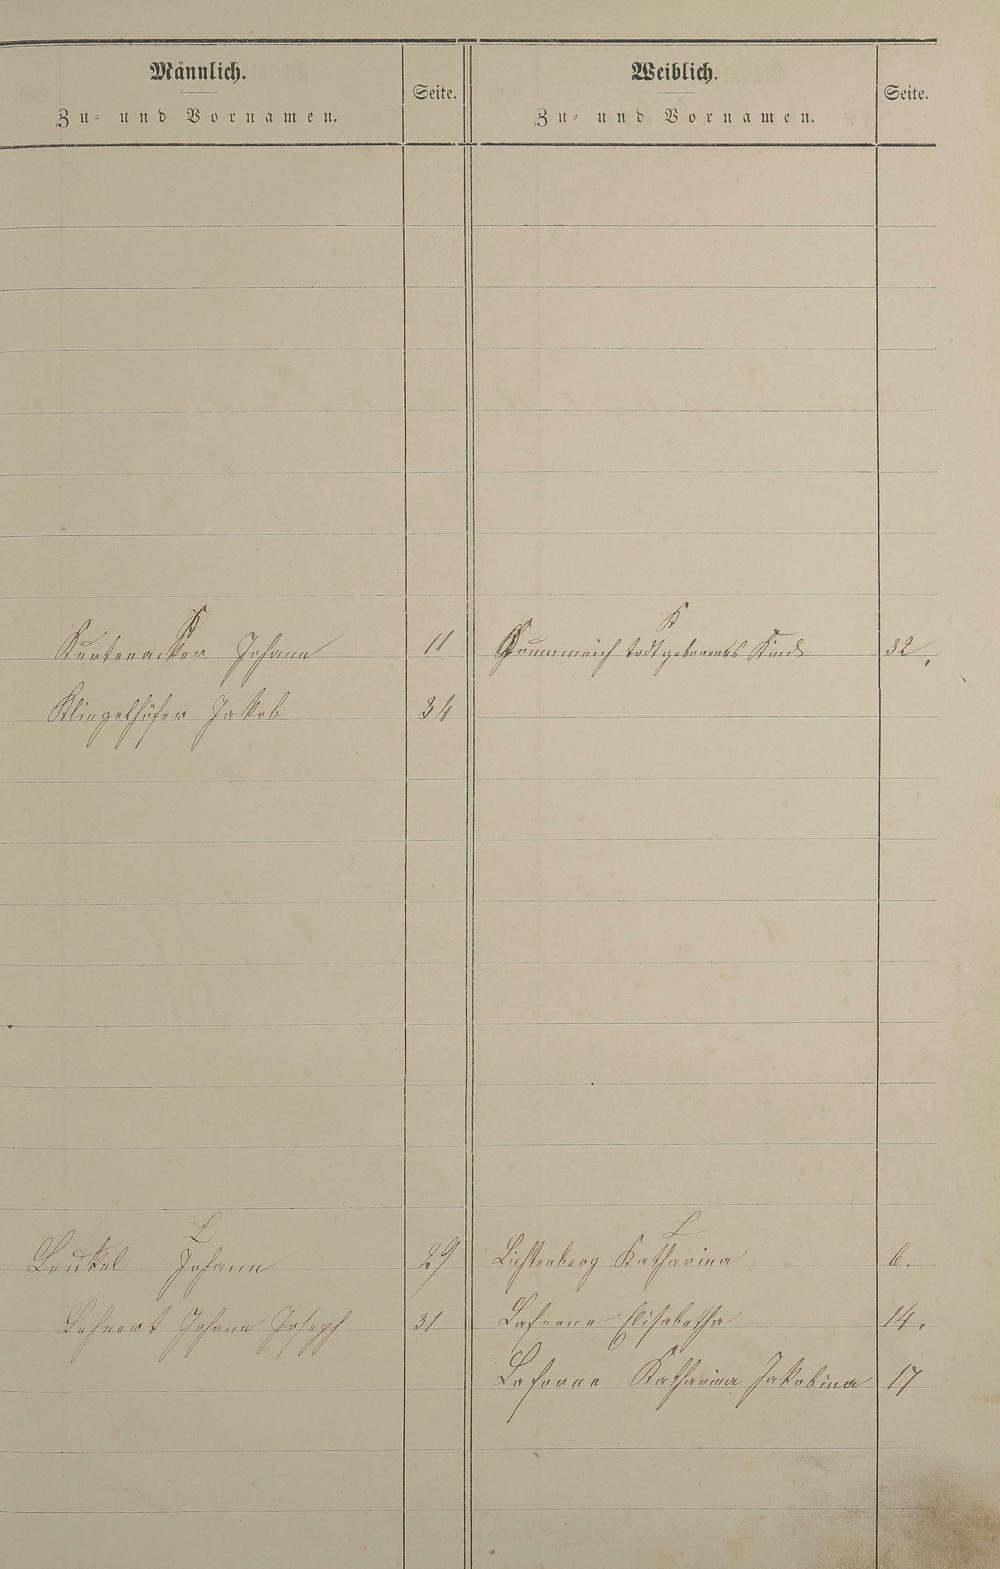 Männlich.
Zu- und Vornamen.
Seite.
Weiblich.
Zu- und Vornamen.
Seite.
K
Kurtenacker Johann 11
Klingelhöfer Jakob 34
K
Krummeich todtgeborenes Kind 32.
L
Leukel Johann 29
Lehnert Johann Joseph 31
L
Lichtenberg Katharina 6.
Laforne Elisabetha 14.
Laforne Katharina Jakobina 17